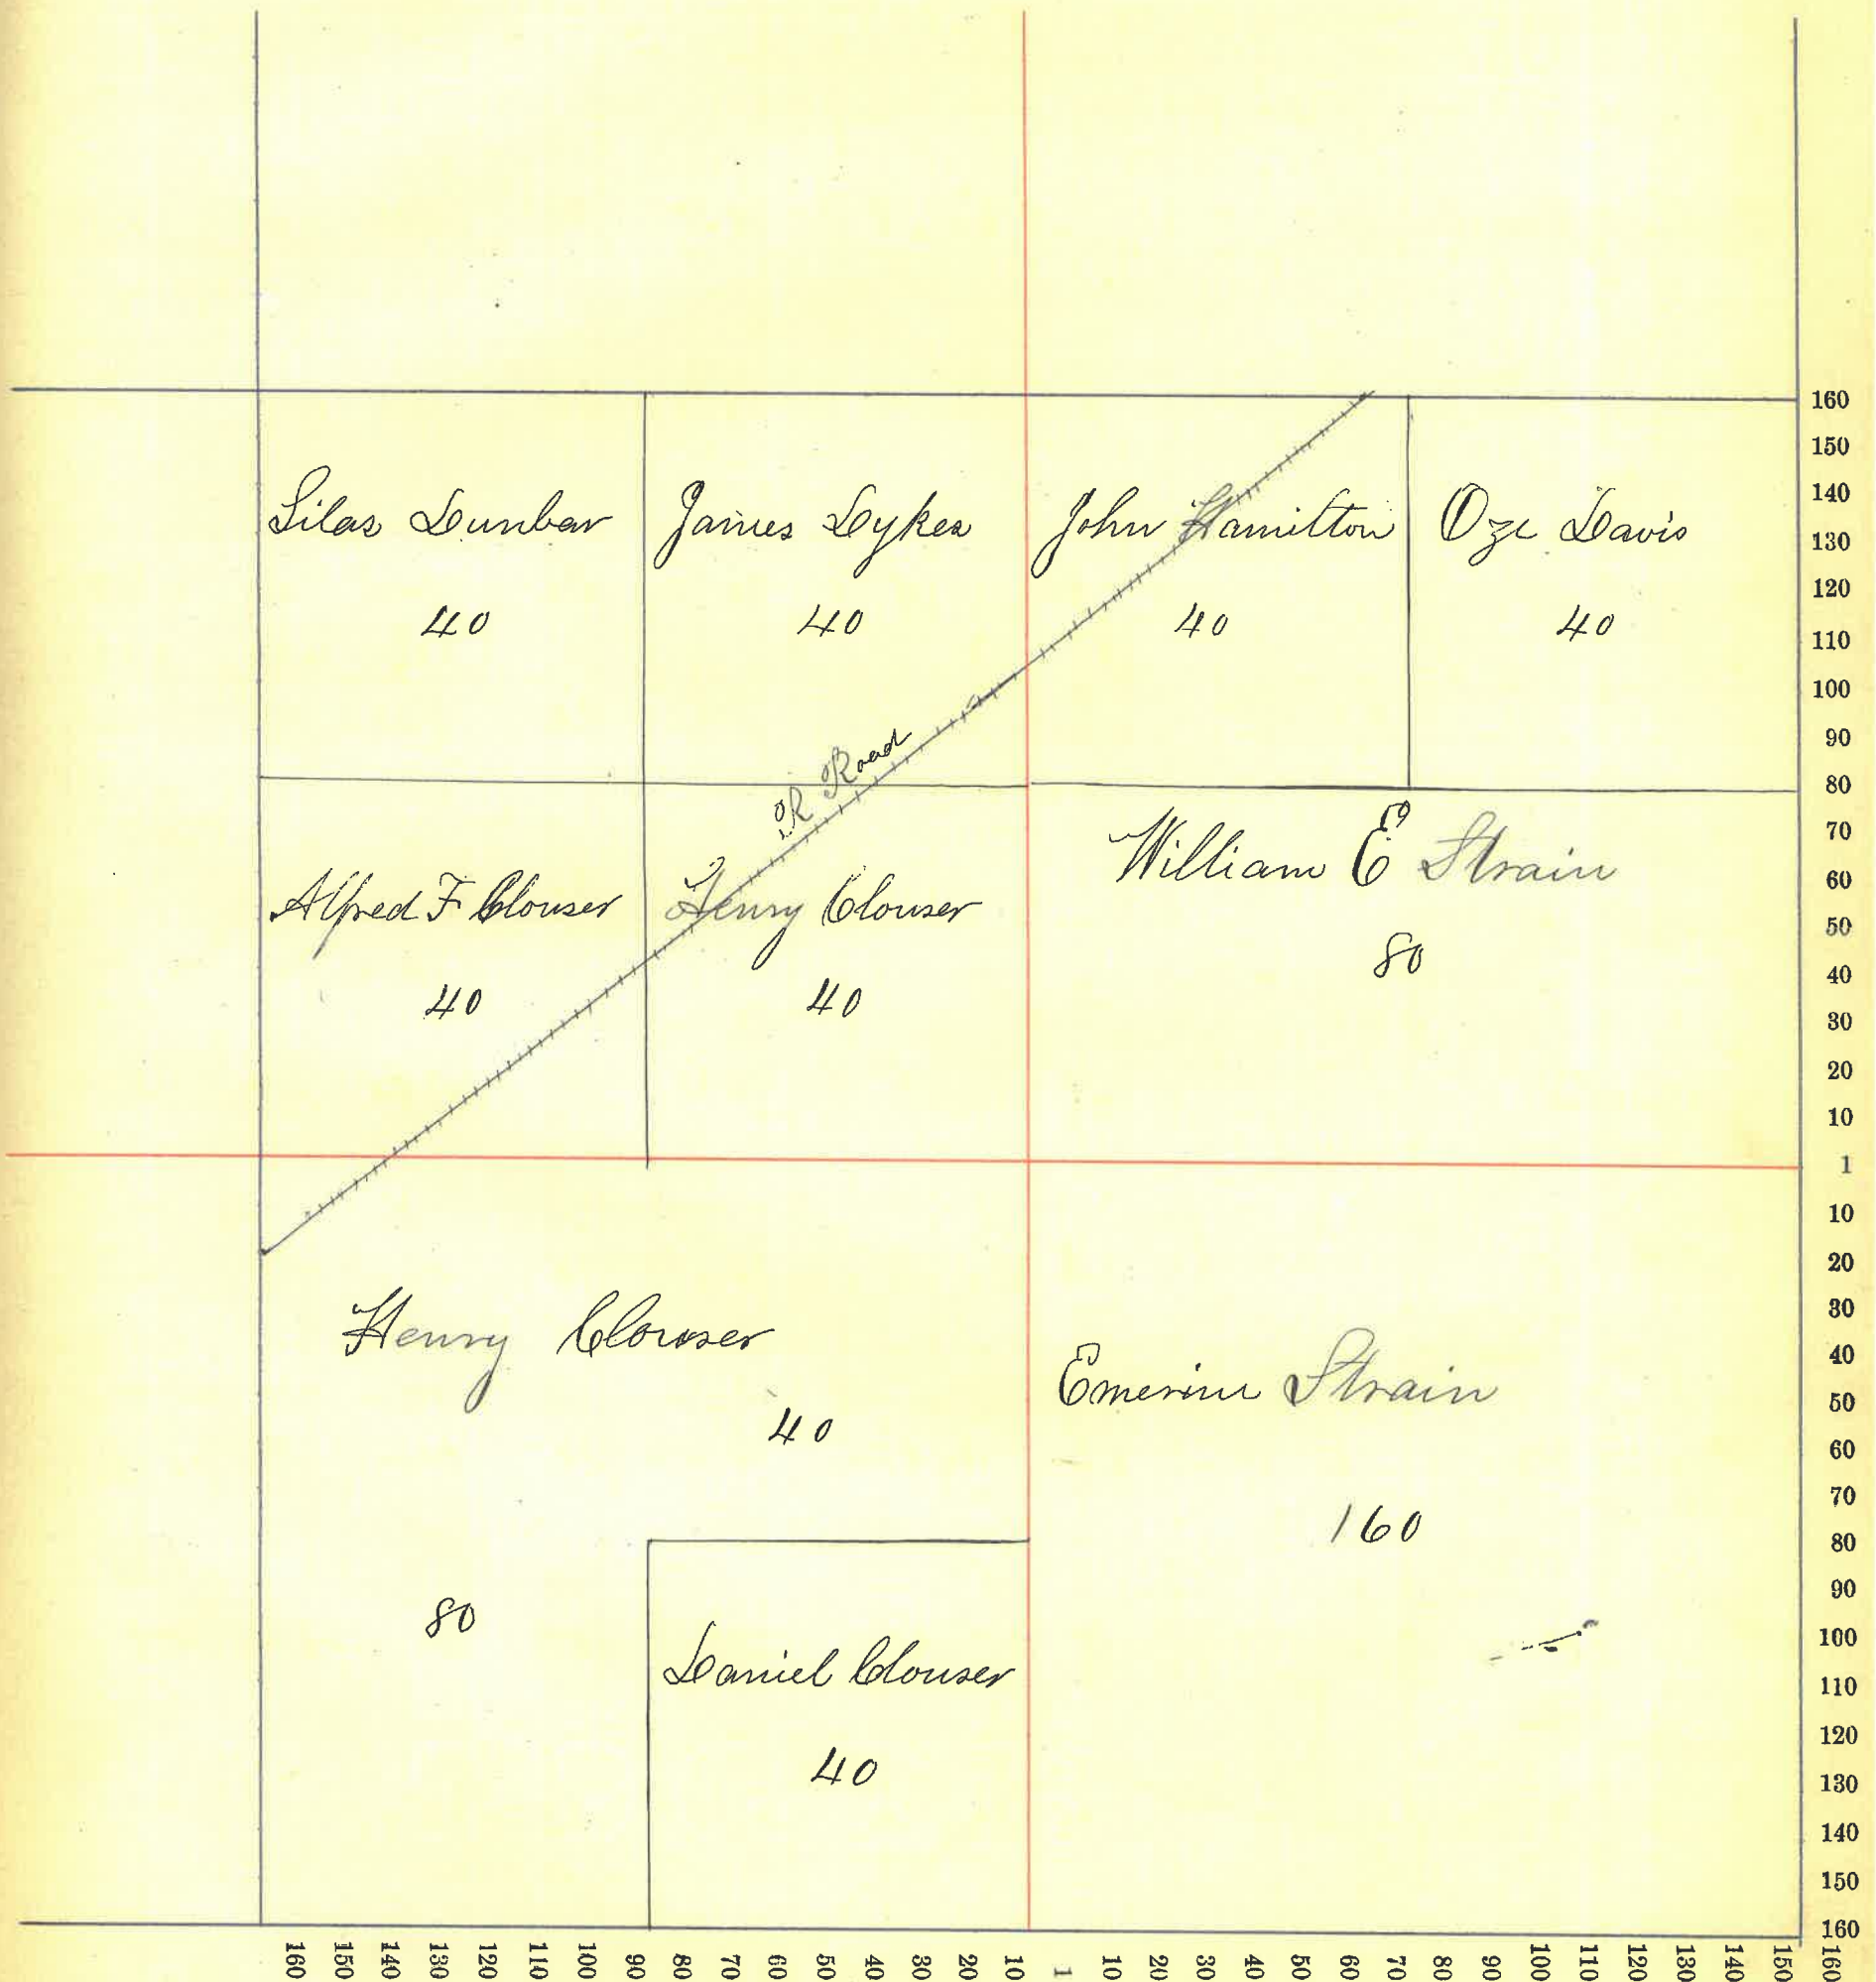 Silas Dunbar
40
James Dykes
40
John Hamilton
40
Oze Davis
40
R Road
Alfred F Clouser
40
Henry Clouser
40
William E Strain
80
Henry Clouser
40
80
Emerine Strain
160
Daniel Clouser
40
160
150
140
130
120
110
100
90
80
70
60
50
40
30
20
10
1
10
20
30
40
50
60
70
80
90
100
110
120
130
140
150
160
160 150 140 130 120 110 100 90 80 70 60 50 40 30 20 10 1 10 20 30 40 50 60 70 80 90 100 110 120 130 140 150 160